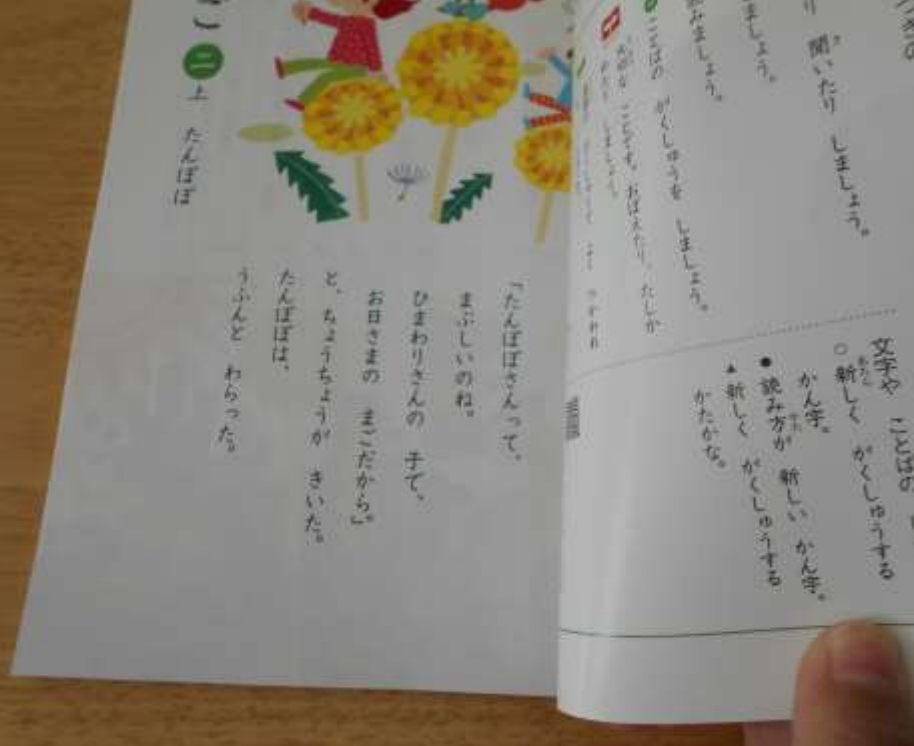 つぎの
聞いたり しましょう。
ましょう。
みましょう。
ことばの がくしゅうを しましょう。
大切な ことです。おぼえたり、たしか
しましょう。
文字や ことばの
○新しく がくしゅうする
かん字。
●読み方が 新しい かん字。
▲新しく がくしゅうする
かたかな。
「たんぽぽさんって、
まぶしいのね。
ひまわりさんの 子で、
お日さまの まごだから。」
と、ちょうちょうが きいた。
たんぽぽは、
うふんと わらった。
こ 二上 たんぽぽ